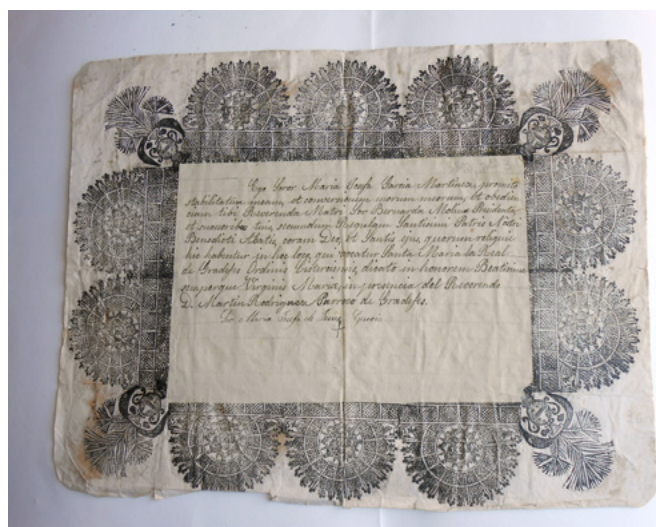 Ego Soror Maria Josefa Garcia Martinez, promito
stabilitatem meam, et conversionem morum meorum, et obedien
ciam tibi Reverenda Matri Sor Bernarda Molina Presidenta,
et succoribus tuis, secundum Regulam Santissimi Patris Nostri
Benedicti Abatis, coram Deo, et Santis ejus quorum reliquie
hic habentur, in hoc loco qui vocatur Santa Maria la Real
de Gradefes Ordinis Cisterciensis, dicato in honorem Beatissime
semperque Virginis Marie, in presencia del Reverendo
D. Martin Rodriguez Parroco de Gradefes.
Sor Maria Josefa de Garcia